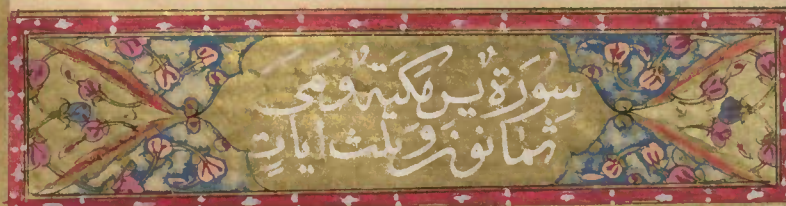 سُورَةُ يٰسٓ مَكِّيَّةٌ وَهِيَ
ثَمَانُونَ وَثَلٰثُ اٰيَاتٍ